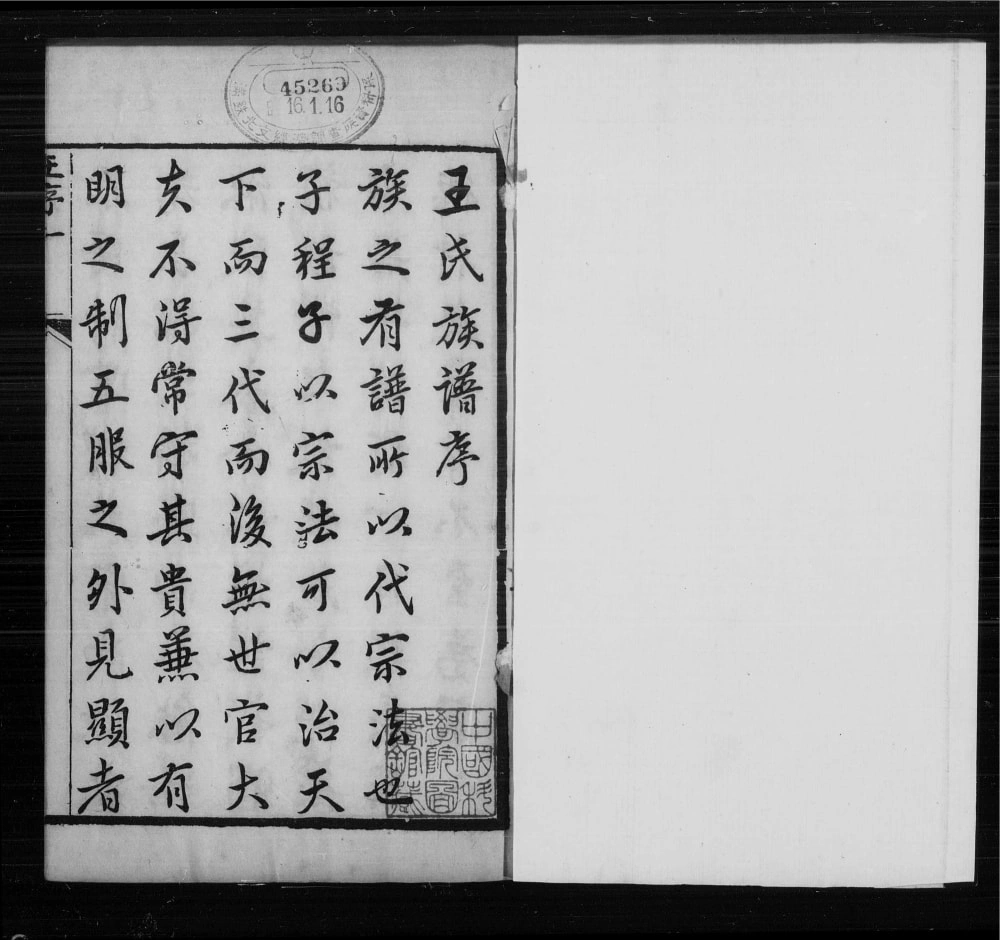 王氏族譜序
族之有譜所以代宗法也
子程子以宗法可以治天
下而三代而後無世官大
夫不得常守其貴蕪以有
明之制五服之外見顯者
王序一
45263
16.1.16
中國科
學院圖
書館藏